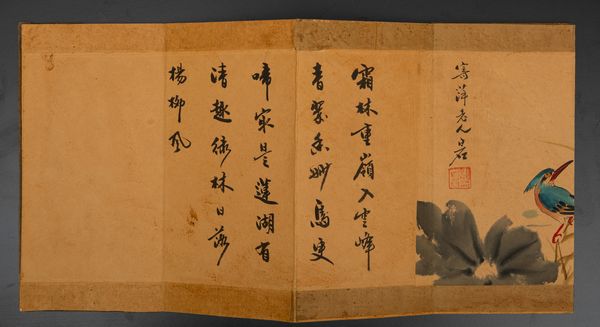 寄萍老人白石
霜林重嶺入雲峰
青翠妙鳥更
啼家是蓮湖有
清趣綠林日落
楊柳風